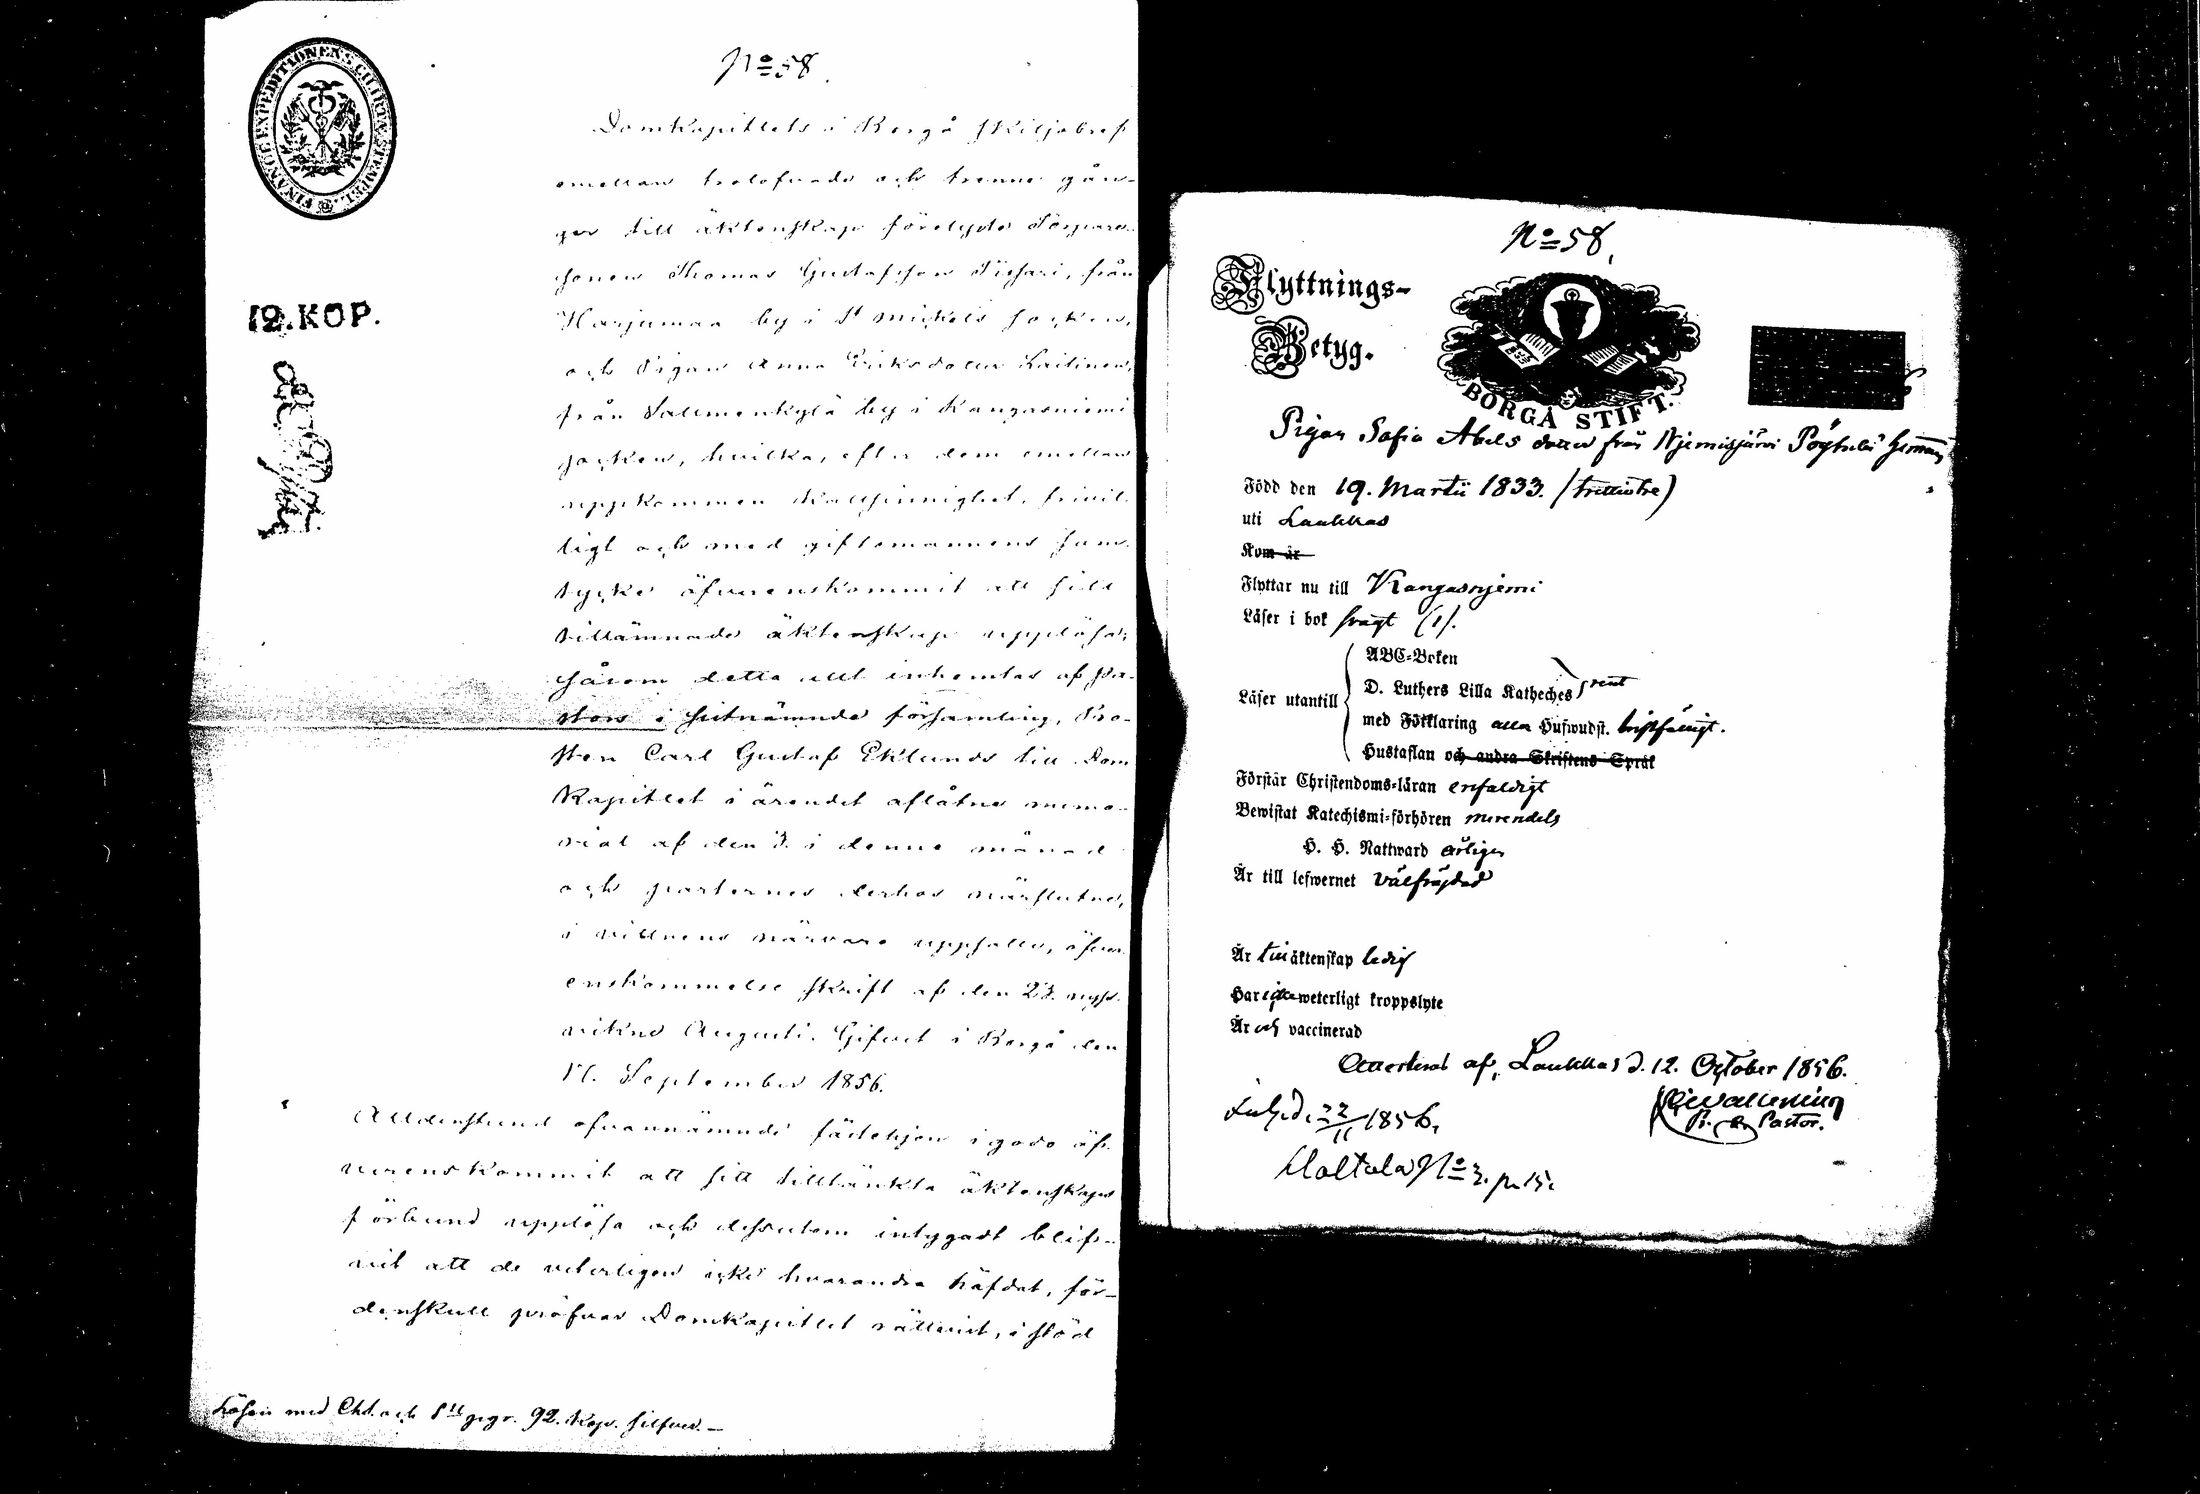 FINANCE EXPEDITIONENS CHARTÆ STEMPEL
12. KOP.
No 58.
Domkapitlets i Borgå skiljobref
emellan trolofvade och trenne gån-
ger till äktenskap förelyste Torpare-
sonen Thomas Gustafsson Tissari, från
Harjumaa by i St Michels socken,
och Pigan Anna Eriksdotter Laitinen,
från Salmenkylä by i Kangasniemi
socken, hvilka, efter dem emellan
uppkommen kallsinnighet, frivil-
ligt och med giftomannens sam-
tycke öfverenskommit att sitt
tillämnade äktenskap upplösa;
såsom detta allt inhemtas af Pa-
storn i sistnämnde församling, Pro-
sten Carl Gustaf Eklunds till Dom
Kapitlet i ärendet aflåtne memo-
rial af den 3. i denne månad
och parternes derhos närslutne,
i vittnens närvaro uppsatte, öfver-
enskommelse skrift af den 23. nyss-
vikne Augusti. Gifvet i Borgå den
17. September 1856.
Alldenstund ofvannämnde fästehjon i godo öf-
verenskommit att sitt tilltänkta äktenskaps
förbund upplösa och dessutom intygadt blif-
vit att de veterligen icke hvarandra häfdat, för-
denskull pröfvar Domkapitlet rättvist, i stöd
Lösen med Cht. och pgr. 92. Kop. silfver.
No 58.
Flyttnings-
Betyg.
BORGÅ STIFT.
Pigan Sofia Abels dotter från Njemisjärvi
Född den 19. Martii 1833. (trettiotre)
uti Laukkas
Kom år
Flyttar nu till Kangasnjemi
Läser i bok svagt (1).
ABC-Boken
Läser utantill D. Luthers Lilla Katheches
med Förklaring alla Hufwudst. bristfälligt.
Hustaflan och andra Skriftens Språk
Förstår Christendoms-läran enfaldigt
Bewistat Katechismi-förhören merendels
H. H. Nattward årligen
Är till lefwernet välfräjdad
Är till äktenskap ledig
Har icke weterligt kroppslyte
Är och vaccinerad
Attesteras af, Laukkas d. 12. October 1856.
Pastor.
22/11 1856.
No 3. p. 15.